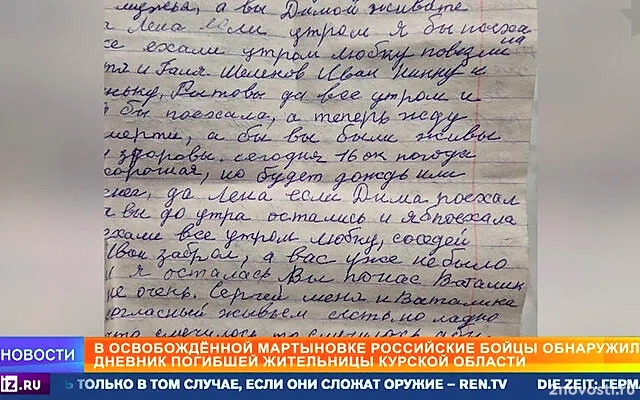 а вы Димой живите
Лена если утром я бы поеха
ла
же ехали утром Любку повезли
и Галя Шеленов Иван Нинну и
да все утром и
бы поехала, а теперь жду
мерти, а бы вы были живы
здоровы. сегодня 16 ок погода
хорошая, но будет дождь или
снег, да Лена если Дима поехал
вы до утра остались и я б поехала
ехали все утром Любку, соседей
Иван забрал, а вас уже не было
я осталась Вы понас Виталик
не очень. Сергей меня и Виталика
живьем съесть, но ладно
что случилось то случилось
НОВОСТИ
В ОСВОБОЖДЁННОЙ МАРТЫНОВКЕ РОССИЙСКИЕ БОЙЦЫ ОБНАРУЖИЛ
ДНЕВНИК ПОГИБШЕЙ ЖИТЕЛЬНИЦЫ КУРСКОЙ ОБЛАСТИ
IZ.RU
Ь ТОЛЬКО В ТОМ СЛУЧАЕ, ЕСЛИ ОНИ СЛОЖАТ ОРУЖИЕ – REN.TV DIE ZEIT: ГЕРМА
znovosti.ru